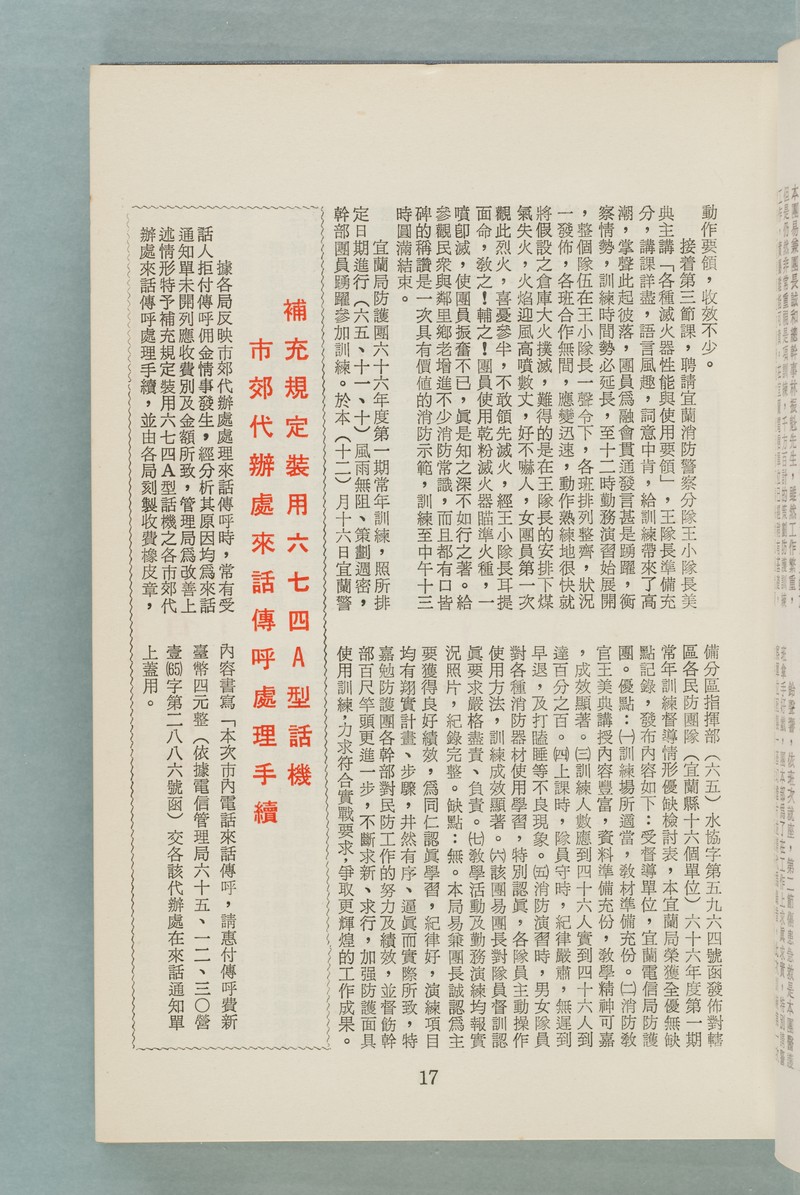 動作要領，收效不少。
接着第三節課，聘請宜蘭消防警察分隊王小隊長美
典主講「各種滅火器性能與使用要領」，王隊長準備充
分，講課詳盡，語言風趣，詞意中肯，給訓練帶來了高
潮，掌聲此起彼落，團員爲融會貫通發言甚是踴躍，衡
察情勢，訓練時間勢必延長，至十二時勤務演習始展開
，整個隊伍在王小隊長一聲令下，各班排列整齊，狀況
一發佈，各班合作無間，應變迅速，動作熟練地很快就
將假設之倉庫大火撲滅，難得的是在王隊長的安排下煤
氣失火，火焰迎風高噴數丈，好不嚇人，女團員第一次
觀此烈火，喜憂參半，不敢領先滅火，經王小隊長耳提
面命，敎之！輔之！團員使用乾粉滅火器瞄準火種，一
噴卽滅，使團員振奮不已，眞是知之深不如行之著。給
參觀民衆與鄰里鄉老增進不少消防常識，而且都有口皆
碑的稱讚是一次具有價値的消防示範，訓練至中午十三
時圓滿結束。
宜蘭局防護團六十六年度第一期常年訓練，照所排
定日期進行（六五、十一、十）風雨無阻、策劃週密，
幹部團員踴躍參加訓練。於本（十二）月十六日宜蘭警
備分區指揮部（六五）水協字第五九六四號函發佈對轄
區各民防團隊（宜蘭縣十六個單位）六十六年度第一期
常年訓練督導情形優缺檢討表，本宜蘭局榮獲全優無缺
點記錄，發布內容如下：受督導單位，宜蘭電信局防護
團。優點：㈠訓練場所適當，敎材準備充份。㈡消防敎
官王美典講授內容豐富，資料準備充份，敎學精神可嘉
，成效顯著。㈢訓練人數應到四十六人實到四十六人到
達百分之百。㈣上課時，隊員守時，紀律嚴肅，無遲到
早退，及打瞌睡等不良現象。㈤消防演習時，男女隊員
對各種消防器材使用學習，特別認眞，各隊員主動操作
使用方法，訓練成效顯著。㈥該團易團長對隊員督訓認
眞要求嚴格盡責、負責。㈦敎學活動及勤務演練均報實
況照片，紀錄完整。缺點：無。本局易兼團長誠認爲主
要獲得良好績效，爲同仁認眞學習，紀律好，演練項目
均有翔實計畫、步驟，井然有序、逼眞而實際所致，特
嘉勉防護團各幹部對民防工作的努力及績效，並督飭幹
部百尺竿頭更進一步，不斷求新、求行，加强防護面具
使用訓練，力求符合實戰要求，爭取更輝煌的工作成果。
補充規定裝用六七四A型話機
市郊代辦處來話傳呼處理手續
據各局反映市郊代辦處處理來話傳呼時，常有受
話人拒付傳呼佣金情事發生，經分析其原因均爲來話
通知單未開列應收費別及金額所致，管理局爲改善上
述情形特予補充規定裝用六七四A型話機之各市郊代
辦處來話傳呼處理手續，並由各局刻製收費橡皮章，
內容書寫「本次市內電話來話傳呼，請惠付傳呼費新
臺幣四元整（依據電信管理局六十五、一二、三〇營
壹(65)字第二八八六號函）交各該代辦處在來話通知單
上蓋用。
17